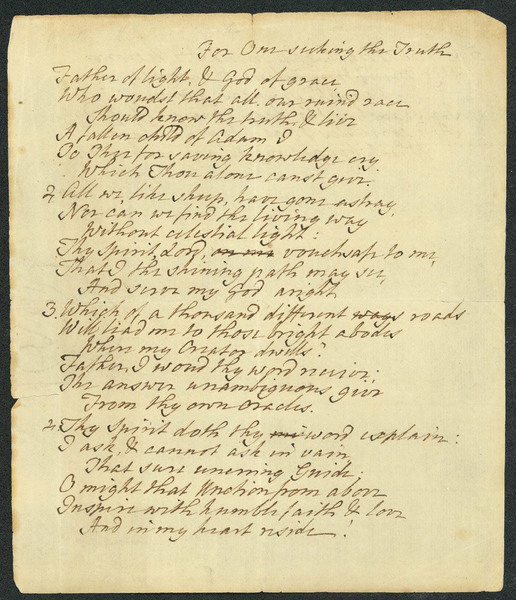 For One seeking the Truth
Father of light, & God of grace
Who woudst that all our ruin'd race
Should know the truth, & live
A fallen child of Adam I
To Thee for saving knowledge cry
Which Thou alone canst give.
2. All we, like sheep, have gone astray,
Nor can we find the living way
Without celestial light:
Thy Spirit, Lord, on me vouchsafe to me,
That I the shining path may see,
And serve my God aright
3. Which of a thousand different ways roads
Will lead me to those bright abodes
Where my Creator dwells?
Father, I woud thy word receive:
The answer unambiguous give
From thy own Oracles.
4. Thy Spirit doth thy word explain:
I ask, & cannot ask in vain,
That sure unerring Guide:
O might that Unction from above
Inspire with humble faith & love
And in my heart reside!